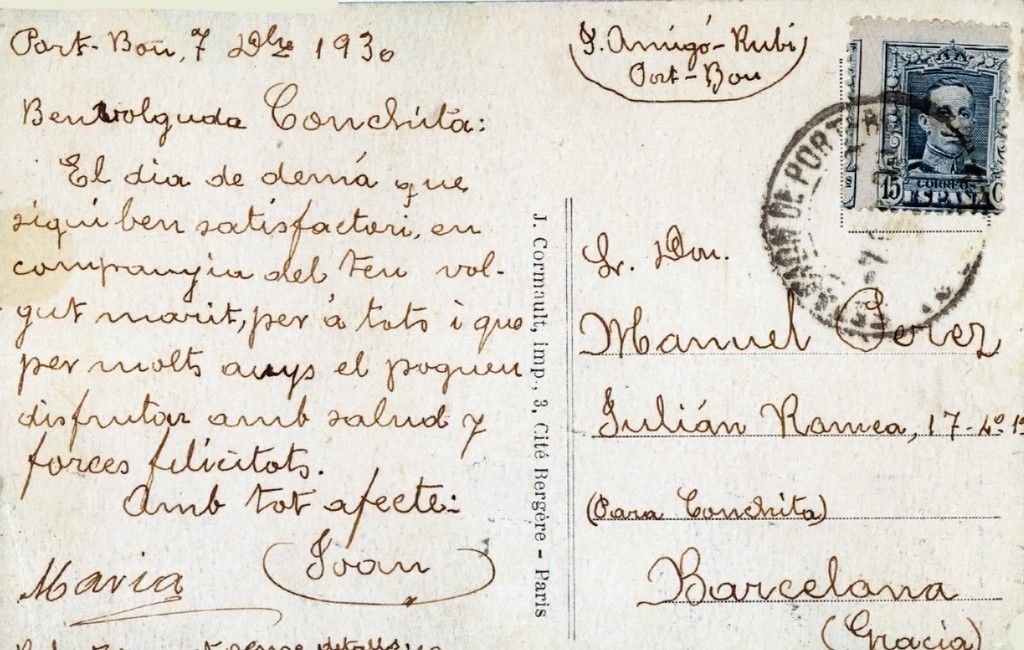 Port-Bou, 7 Dbre 1930
Benvolguda Conchita:
El dia de demá que
siguiben satisfactori, en
companyia del teu vol-
gut marit, per á tots i que
per molts anys el pogueu
disfrutar amb salud y
forces felicitats.
Amb tot afecte:
Joan
Maria
J. Cormault, imp., 3, Cité Bergère - Paris
J. Amigó-Rubi
Port-Bou
15 CORREOS C
ESPAÑA
DE PORT
Sr. Don.
Manuel Perez
Julián Romea, 17-4º 1ª
(Para Conchita)
Barcelona
(Gracia)